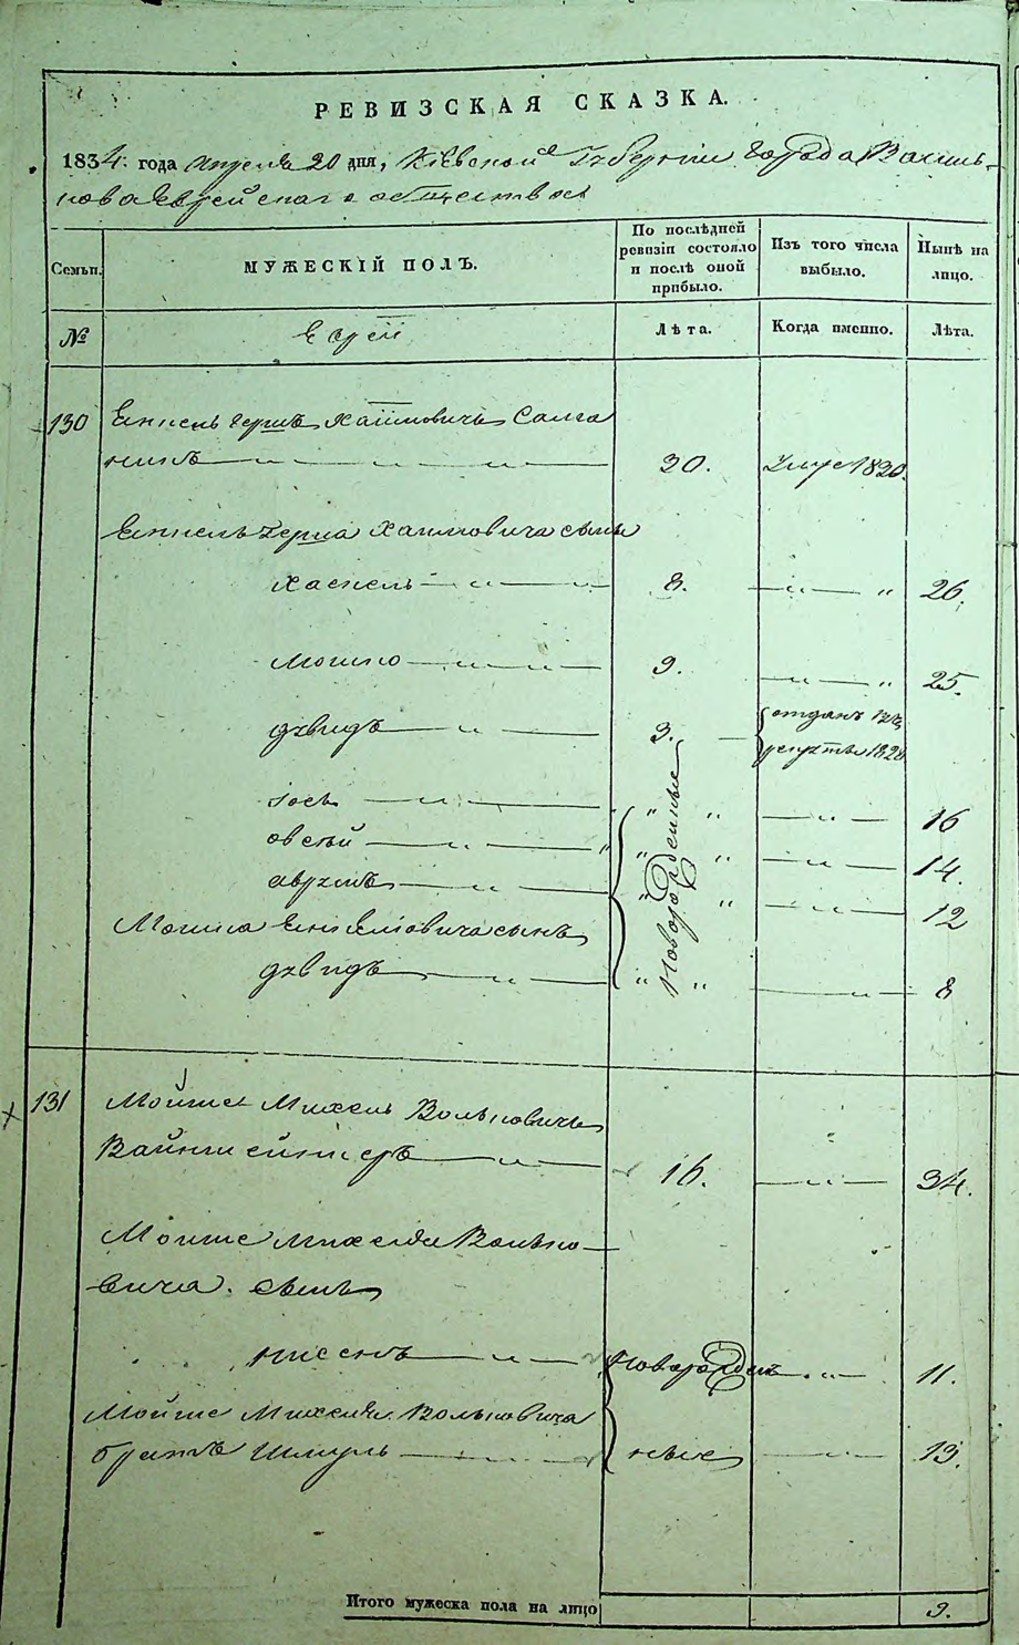 РЕВИЗСКАЯ СКАЗКА.
1834 года Апреля 20 дня, Кіевской Губерніи города Василь-
кова Еврейскаго общества
Семьи.
МУЖЕСКІЙ ПОЛЪ.
По послѣдней
ревизіи состояло
и послѣ оной
прибыло.
Изъ того числа
выбыло.
Нынѣ на
лицо.
№
Евреи
Лѣта.
Когда именно.
Лѣта.
130 Енкель Гершъ Хаимовичъ Салга
никъ 30. умре 1830.
Енкель Герша Хаимовича сыны
Хаскель 8. 26.
Мошко 9. 25.
Дувидъ 3. отданъ въ
рекруты 1828
Іось " " 16
Овсѣй " " 14.
Аврумъ " " 12
Новорожденные
Мошка Енкелiовича сынъ
Дувидъ " " 8
131 Мойше Михель Вольковичъ
Вайнштейнеръ 16. 34.
Мойше Михеля Волько-
вича сынъ
Нисенъ Новорожден 11.
Мойше Михеля Вольковича
братъ Шмуль ные 13.
Итого мужеска пола на лицо 9.